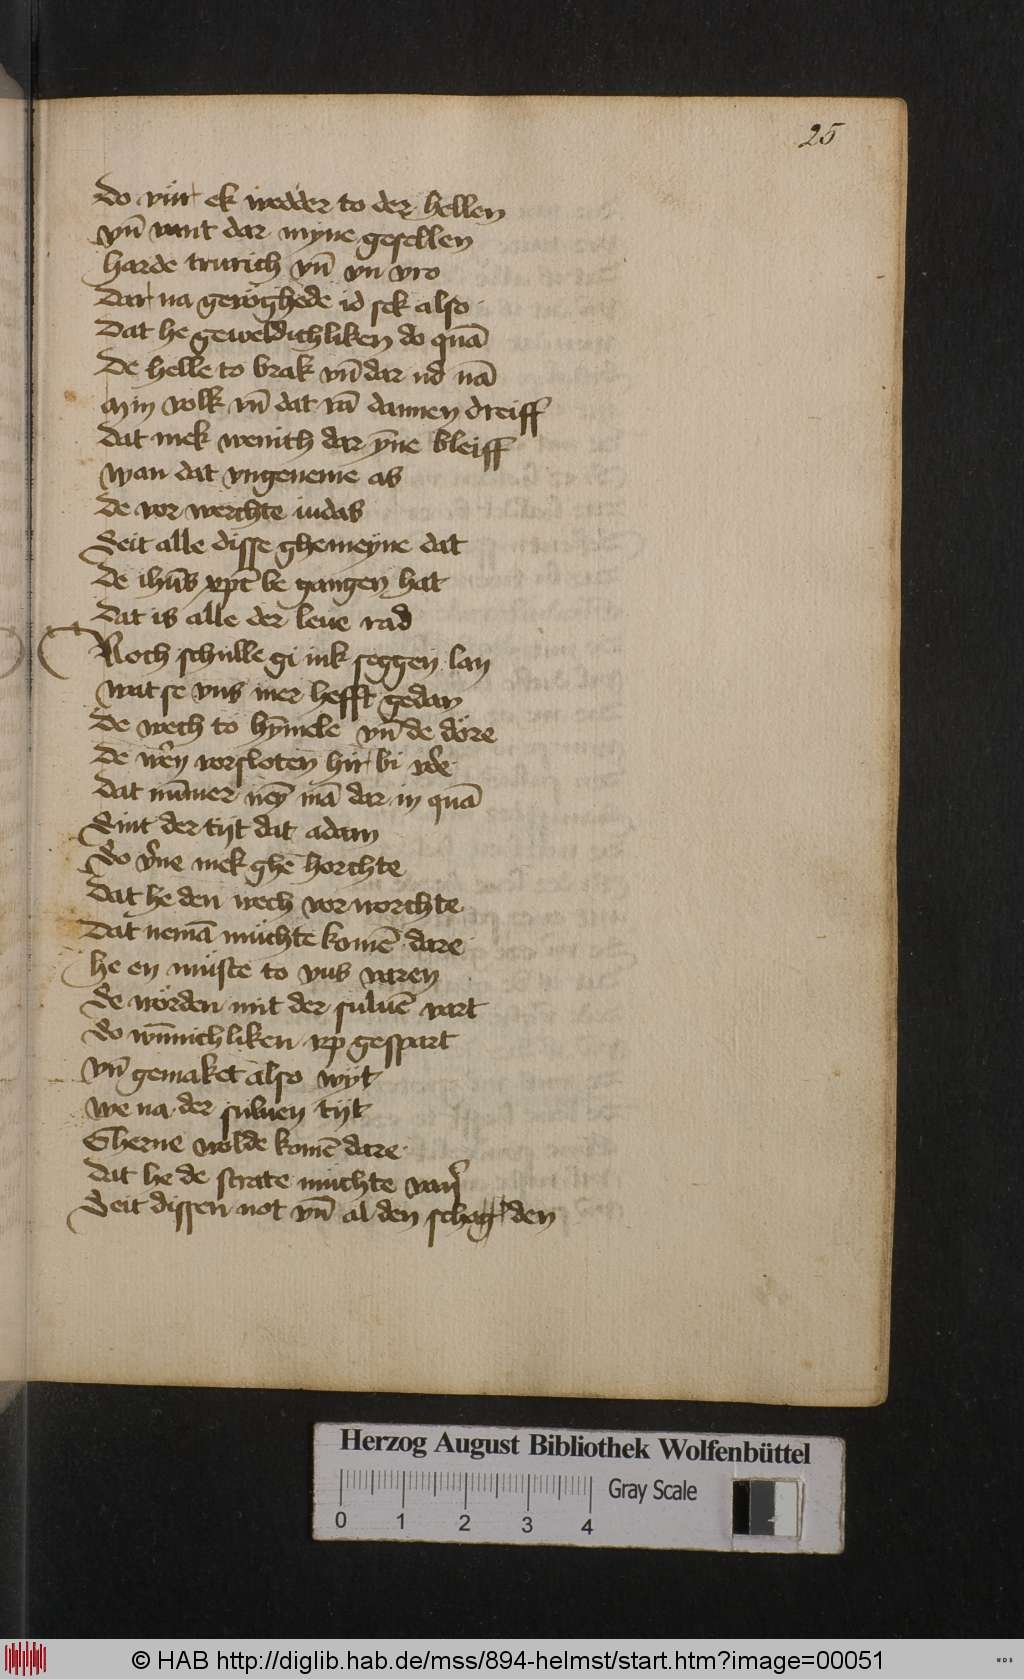 25
Do vür ek wedder to der hellen
vn̄ vant dar myne gesellen
harde trurich vn̄ vn vro
Dar na geröghede id sek also
Dat he geweldichliken do quā
De helle to brak vn̄ dar ud nā
Min volk vn̄ dat vā dannen dreiff
Dat mek wenich dar ȳne bleiff
wan dat vngeneme as
De vor werchte iudas
Seit alle disse ghemeyne dat
De ihūs xp̄c be gangen hat
Dat is alle der leue rad
Noch schulle gi iuk seggen lan
wat se vns mer hefft gedan
De wech to hȳmele vn̄ de döre
De vorsloten hir bi
Dat nūmer neȳ mā dar in quā
Sint der tijt dat adam
Do mek ghē horchte
Dat he den wech vor worchte
Dat nemā muchte komē dare
he en müste to vns varen
De wörden mit der suluē vart
Do wūnichliken vp gespart
vn̄ gemaket also wijt
we na der suluen tijt
Gherne wolde komē dare
Dat he de strate muchte varn̄
Seit dissen not vn̄ al den schaden
Herzog August Bibliothek Wolfenbüttel
Gray Scale
0 1 2 3 4
© HAB http://diglib.hab.de/mss/894-helmst/start.htm?image=00051